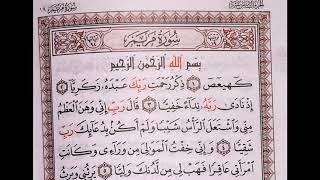 سورة مريم
بسم الله الرحمن الرحيم
كهيعص ۝ ذكر رحمت ربك عبده زكريا ۝
إذ نادى ربه نداء خفيا ۝ قال رب إني وهن العظم
مني واشتعل الرأس شيبا ولم أكن بدعائك رب
شقيا ۝ وإني خفت الموالي من وراءى وكانت
امرأتي عاقرا فهب لي من لدنك وليا ۝ يرثني ويرث